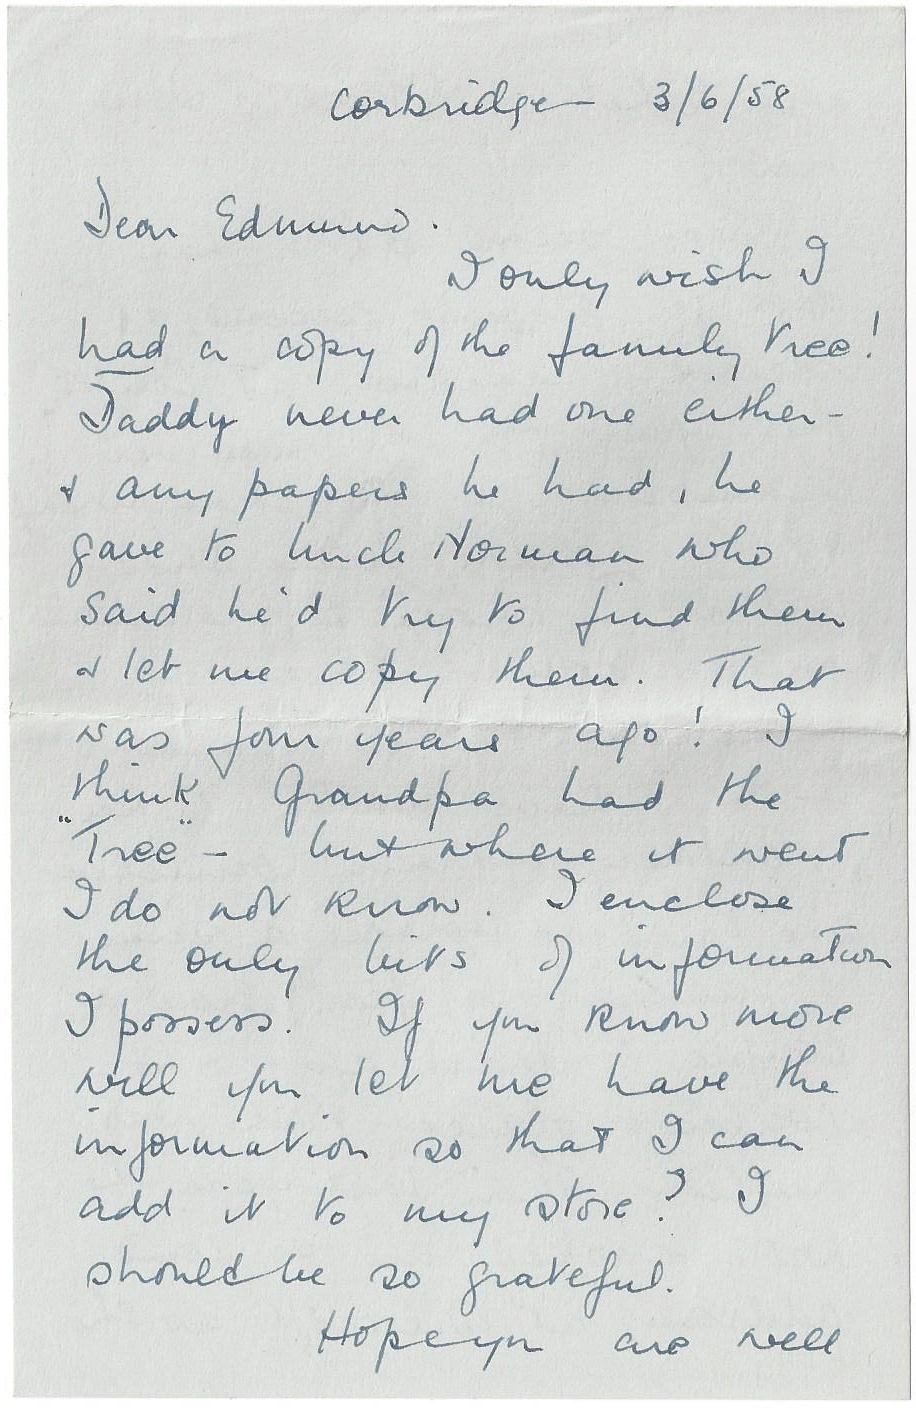 Corbridge 3/6/58
Dear Edmund.
I only wish I
had a copy of the family tree!
Daddy never had one either -
& any papers he had, he
gave to Uncle Norman who
said he'd try to find them
& let me copy them. That
was four years ago! I
think Grandpa had the
"Tree" - but where it went
I do not know. I enclose
the only bits of information
I possess. If you know more
will you let me have the
information so that I can
add it to my store? I
should be so grateful.
Hope you are well